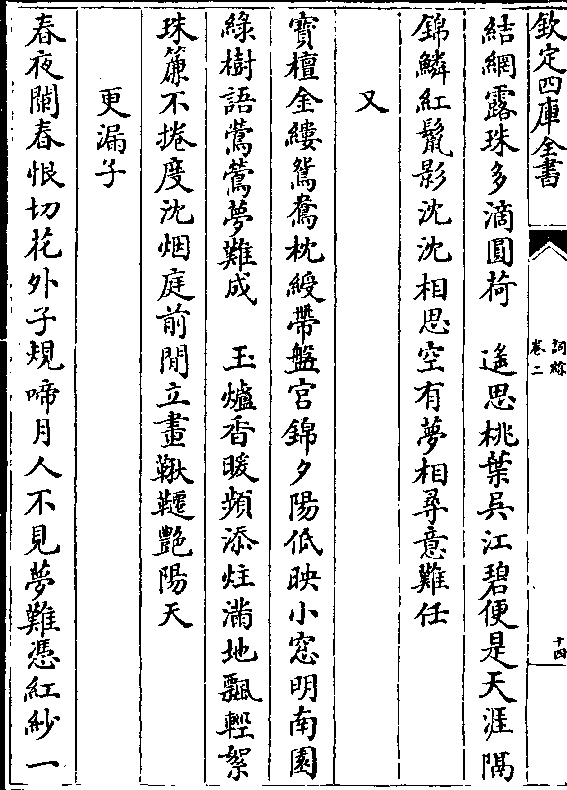 欽定四庫全書
詞綜
卷二
十四
結網露珠多滴圓荷　遙思桃葉吳江碧便是天涯隔
錦鱗紅鬛影沈沈相思空有夢相尋意難任
又
寶檀金縷鴛鴦枕綬帶盤宮錦夕陽低映小窓明南園
綠樹語鶯鶯夢難成　玉爐香暖頻添炷滿地飄輕絮
珠簾不捲度沈烟庭前閒立畫鞦韆艷陽天
更漏子
春夜闌春恨切花外子規啼月人不見夢難憑紅紗一